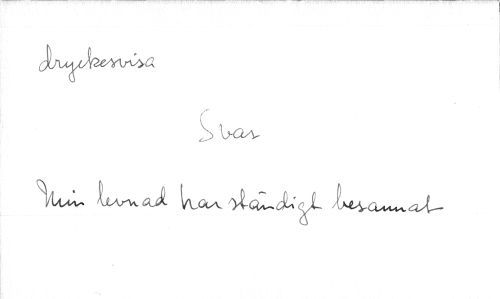 dryckesvisa
Svar
Min levnad har ständigt besannat